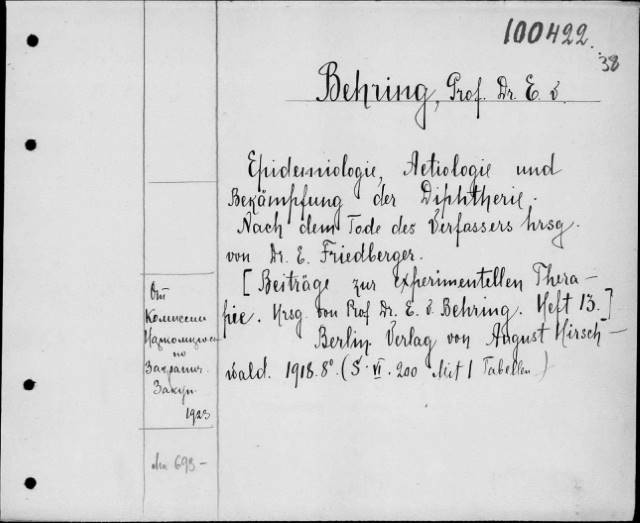 100422.
38
Behring, Prof. Dr. E. v.
Epidemiologie, Aetiologie und
Bekämpfung der Diphtherie.
Nach dem Tode des Verfassers hrsg.
von Dr. E. Friedberger.
[Beiträge zur experimentellen Thera-
pie. Hrsg. von Prof Dr. E. v. Behring. Heft 13.]
Berlin. Verlag von August Hirsch-
wald. 1918. 8°. (S. VI. 200 Mit 1 Tabellen.)
От
Комиссии
по
Загранич.
Закуп.
1923
693-